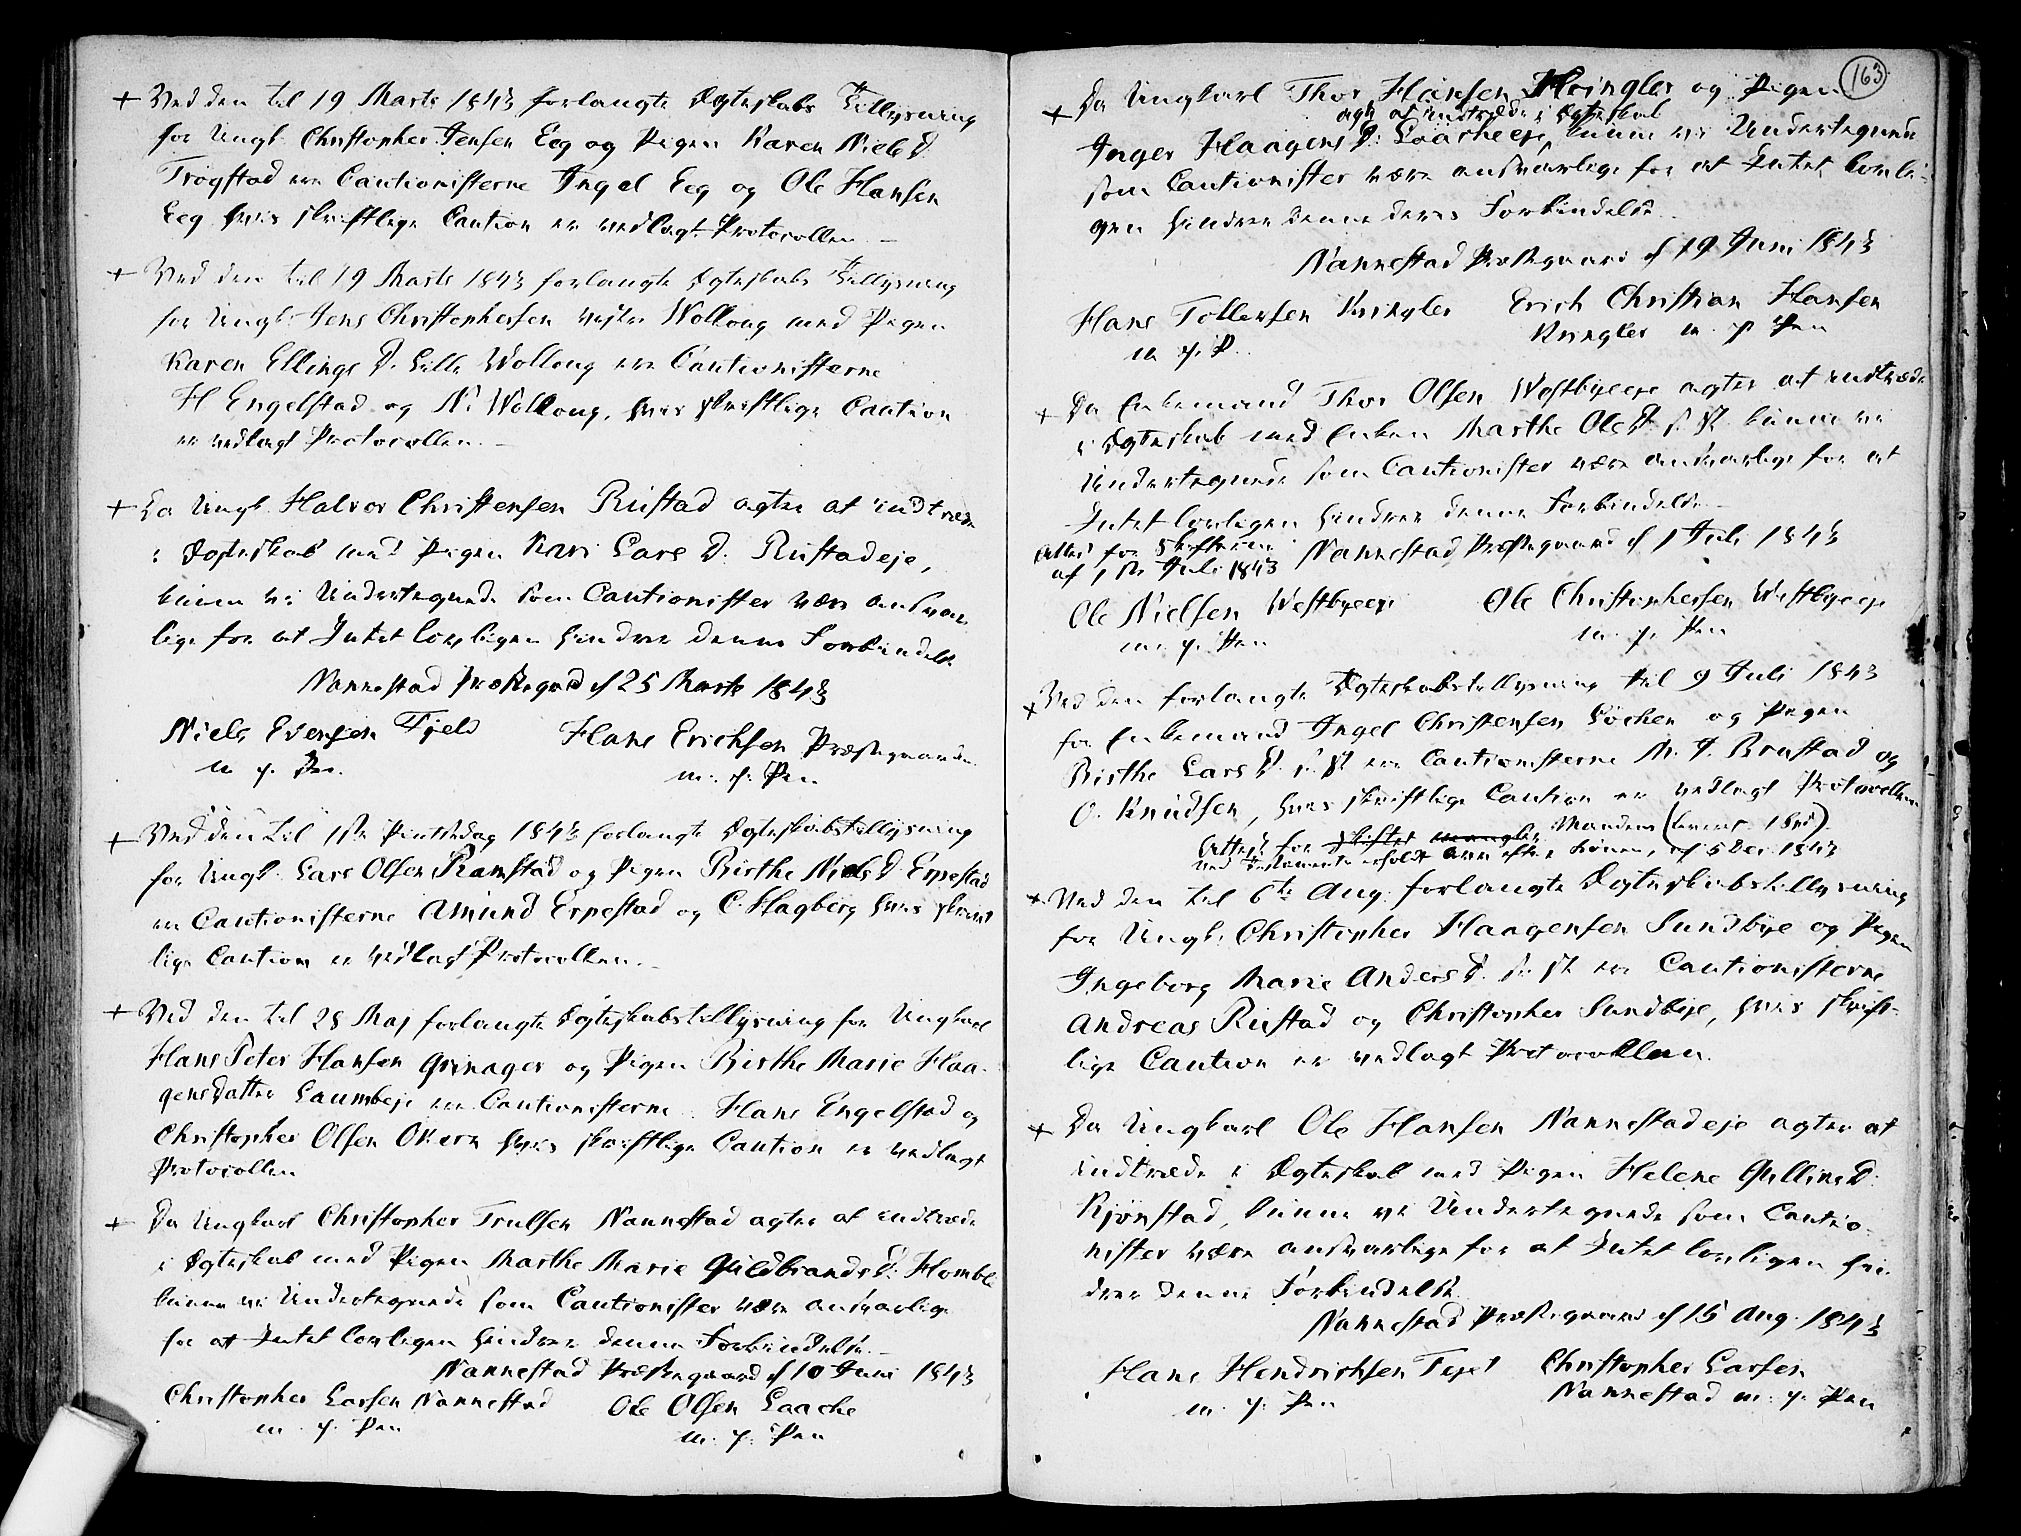 + Ved den til 19 Marts 1843 forlangte Ægteskabs Tillysning
for Ungk. Christopher Jensen Eeg og Pigen Karen Niels D.
Trøgstad ere Cautionisterne Ingel Eeg og Ole Hansen
Eeg hvis skriftlige Caution er vedlagt Protocollen. —
+ Ved den til 19 Marts 1843 forlangte Ægteskabs Tillysning
for Ungk. Jens Christophersen Wollong med Pigen
Karen Ellings D. Lille Wollong ere Cautionisterne
H Engelstad og N. Wollong, hvis skriftlige Caution
er vedlagt Protocollen. —
+ Da Ungk. Halvor Christensen Rustad agter at indtræde
i Ægteskab med Pigen Kari Lars D. Rustadeje,
kunne vi Undertegnede som Cautionister være ansvar-
lige for at Intet lovligen hindrer denne Forbindelse
Nannestad Præstegaard d 25 Marts 1843
Niels Evensen Fjeld Hans Erichsen Præstegaarden
m. p. Pen. m. p. Pen
+ Ved den til 1ste Pintsedag 1843 forlangte Ægteskabstillysning
for Ungk. Lars Olsen Ramstad og Pigen Birthe Niels D. Erpestad
ere Cautionisterne Amund Erpestad og C. Hagberg hvis skrivt
lige Caution er vedlagt Protocollen. —
+ Ved den til 28 Maj forlangte Ægteskabstillysning for Ungkarl
Hans Peter Hansen Grinager og Pigen Birthe Marie Haa-
gensdatter Laumbeje ere Cautionisterne Hans Engelstad og
Christopher Olsen Økern hvis skriftlige Caution er vedlagt
Protocollen
+ Da Ungkarl Christopher Trulsen Nannestad agter at indtræde
i Ægteskab med Pigen Marthe Marie Guldbrands D. Homble
kunne vi Undertegnede som Cautionister være ansvarlige
for at Intet lovligen hindrer denne Forbindelse. —
Nannestad Præstegaard d 10 Juni 1843
Christopher Larsen Nannestad Ole Olsen Laache
m. p. Pen m. p. Pen
163
+ Da Ungkarl Thor Hansen Kringler og Pigen
agte at indtræde i Ægteskab
Inger Haagens D. Laacheeje, kunne vi Undertegnede
som Cautionister være ansvarlige for at Intet lovli-
gen hindrer denne deres Forbindelse.
Nannestad Præstegaard d 19 Juni 1843
Hans Tollersen Kringler Erich Christian Hansen
m. p. P. Kringler m. p. Pen
+ Da Enkemand Thor Olsen Westbyeeje agter at indtræde
i Ægteskab med Enken Marthe Ole D. s. St. kunne vi
Undertegnede som Cautionister være ansvarlige for at
Intet lovligen hindrer denne Forbindelse. —
Attest for Skifterne Nannestad Præstegaard d 1 Juli 1843
af 1ste Juli 1843
Ole Nielsen Westbyeeje Ole Christophersen Westbyeeje
m. p. Pen m. p. Pen
+ Ved den forlangte Ægteskabstillysning til 9 Juli 1843
for Enkemand Ingel Christensen Løchen og Pigen
Birthe Lars D. s. St. ere Cautionisterne M. P. Brustad og
O. Knudsen, hvis skriftlige Caution er vedlagt Protocollen
Attest for Skiftet mangler
af 5 Dec. 1843
+ Ved den til 6te Aug. forlangte Ægteskabstillysning
for Ungk. Christopher Haagensen Sundbye og Pigen
Ingeborg Marie Anders D. s. St. ere Cautionisterne
Andreas Rustad og Christopher Sundbye, hvis skrift-
lige Caution er vedlagt Protocollen.
+ Da Ungkarl Ole Hansen Nannestadeje agter at
indtræde i Ægteskab med Pigen Helene Gulline D.
Kjønstad, kunne vi Undertegnede som Cautio-
nister være ansvarlige for at Intet lovligen hin-
drer denne Forbindelse.
Nannestad Præstegaard d 15 Aug. 1843
Hans Hendrichsen Tejet Christopher Larsen
m. p. Pen Nannestad m. p. Pen